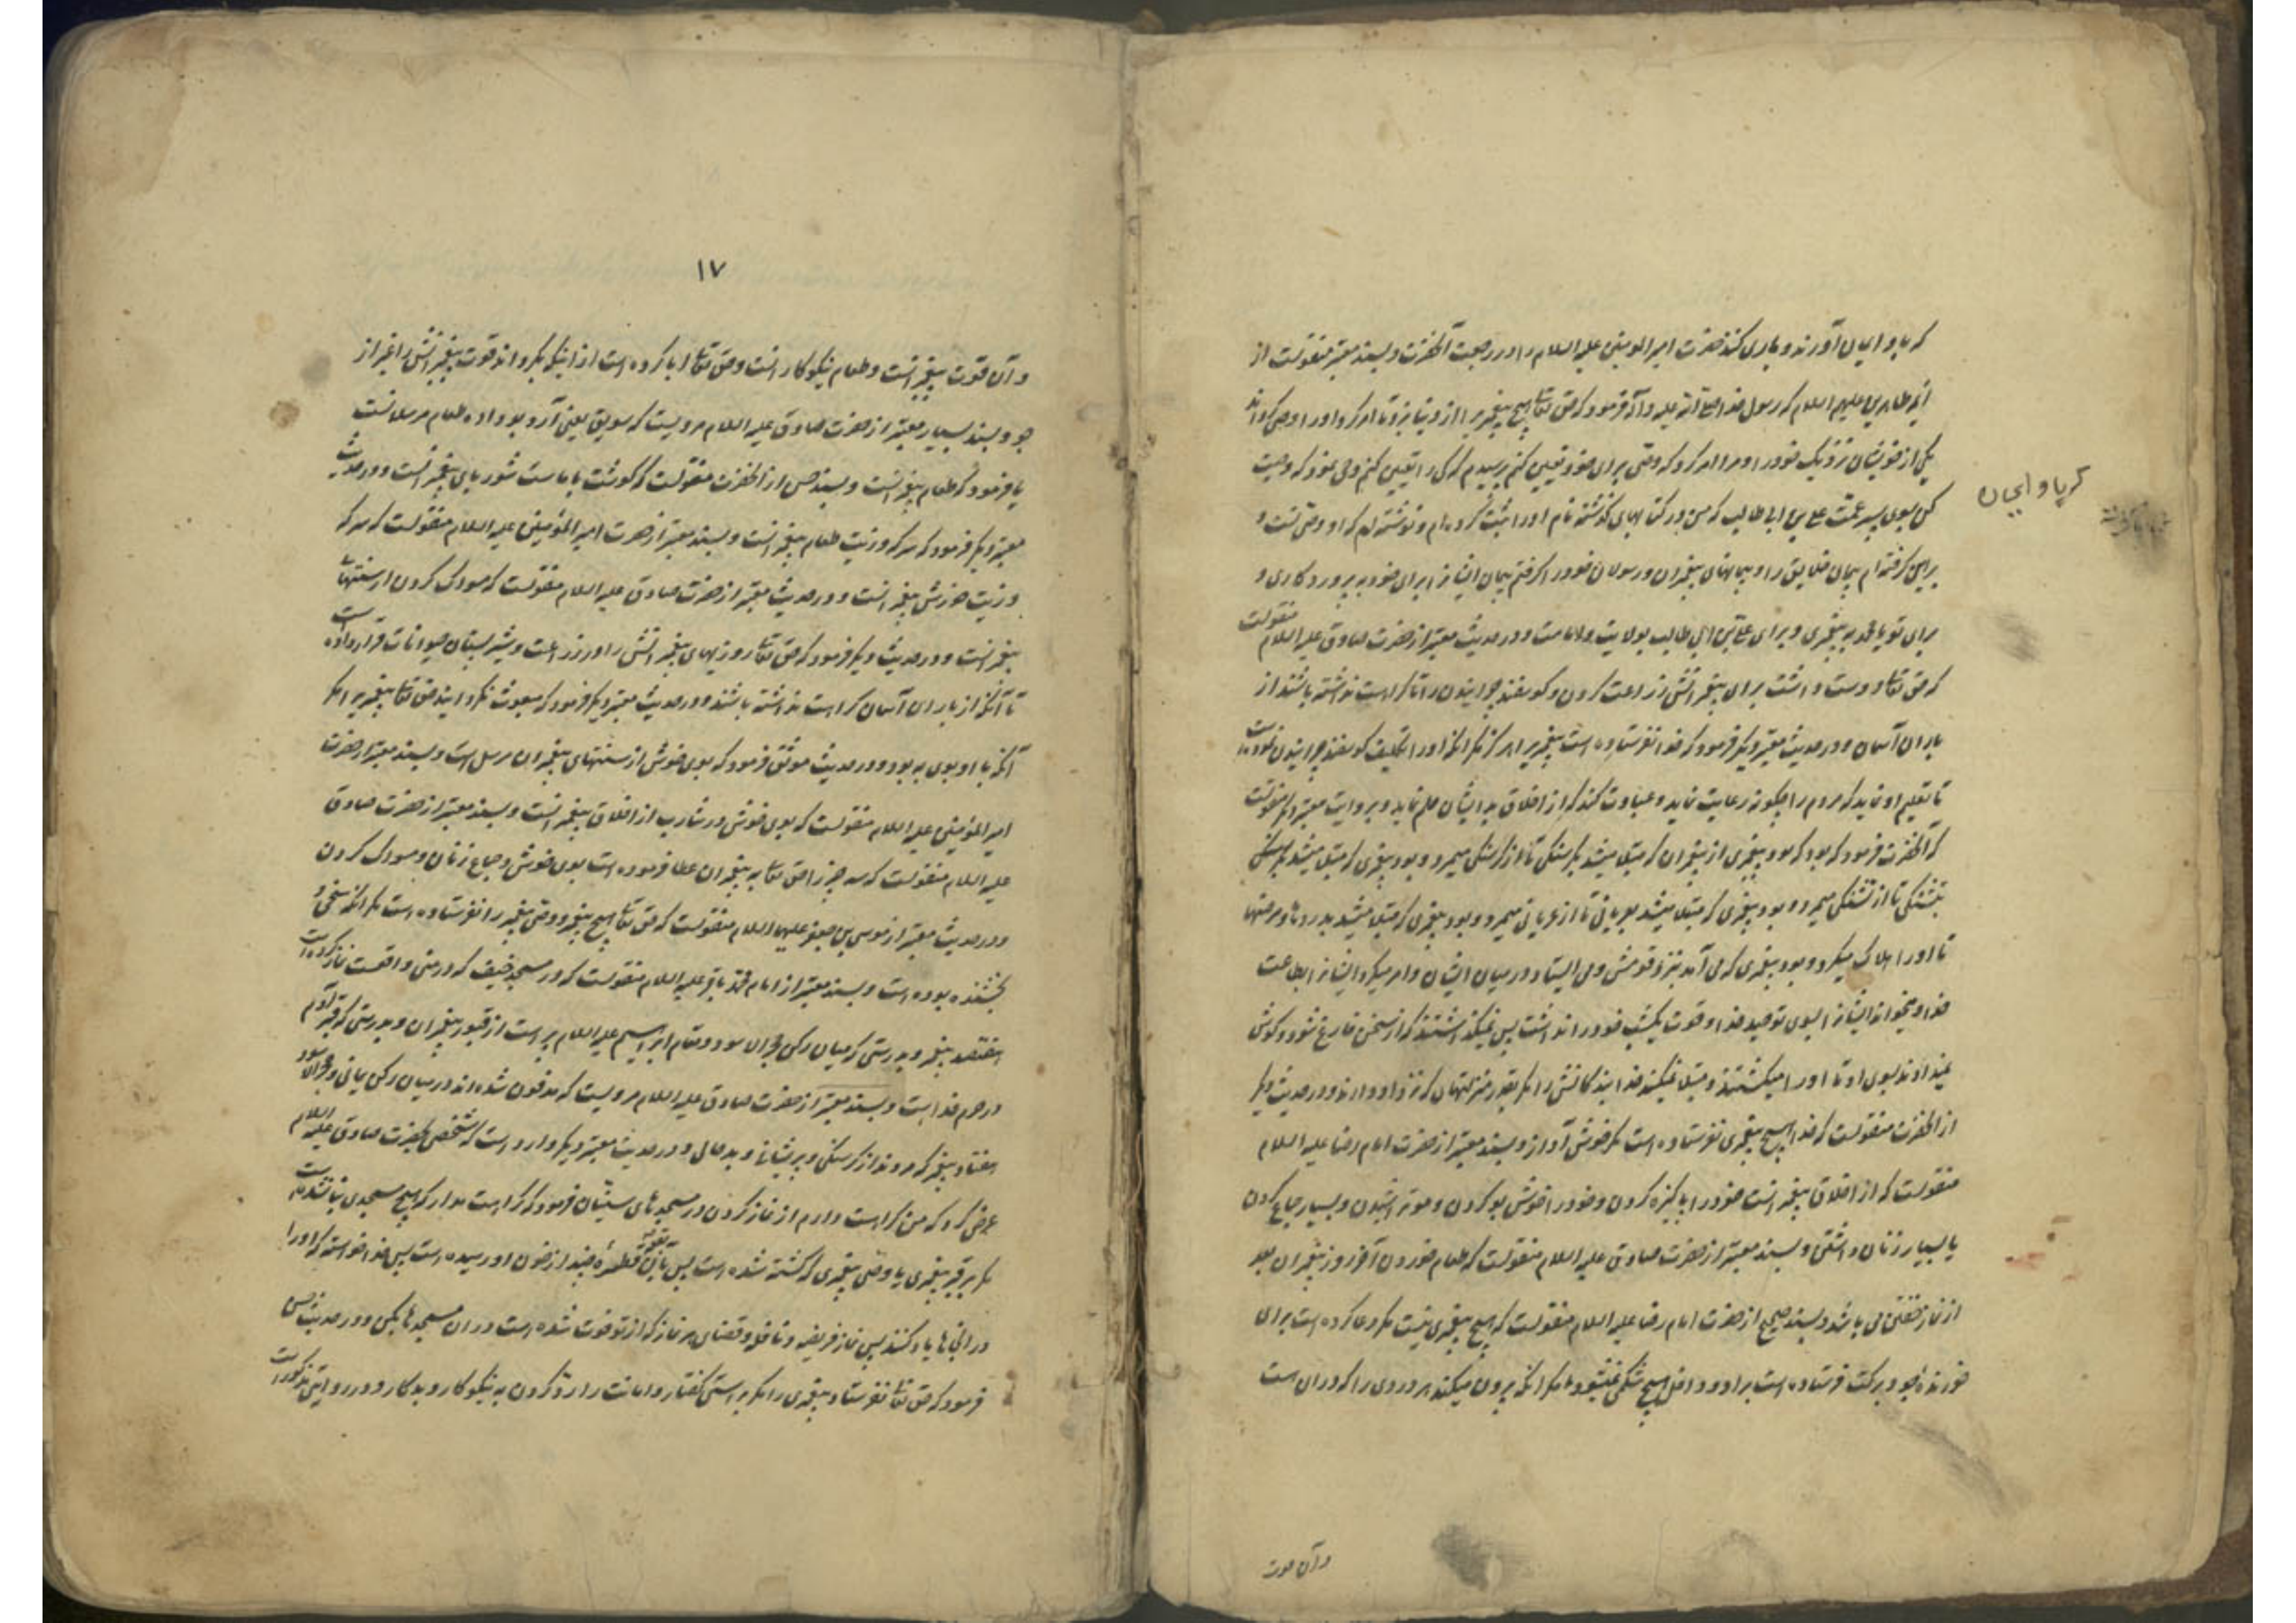 که باو ایمان آورند و یاری کنند حضرت امیر المومنین علیه السلام را در رجعت آنحضرت و بسند معتبر منقولست از
ائمه طاهرین علیهم السلام که رسول خدا صلی الله علیه و آله فرمود که حق تعالی هیچ پیغمبر را از دنیا نبرد تا امر کرد او را که وصی گرداند
یکی از خویشان نزدیک خود را و مرا امر کرد که وصی برای خود تعیین کنم پرسیدم که کی را تعیین کنم وحی نمود که وصیت
کن بسوی پسر عمت علی بن ابی طالب که من در کتابهای گذشته نام او را ثبت کرده ام و نوشته ام که او وصی تست و
برین گرفته ام پیمان خلایق را و پیمانهای پیغمبران و رسولان خود را گرفتم پیمان ایشانرا برای خود به پروردگاری و
برای تو یا محمد به پیغمبری و برای علی بن ابی طالب بولایت و امامت و در حدیث معتبر از حضرت صادق علیه السلام منقولست
که حق تعالی دوست داشت برای پیغمبرانش زراعت کردن و گوسفند چرانیدن را تا کراهت نداشته باشند از
باران آسمان و در حدیث معتبر دیگر فرمود که خدا نفرستاده است پیغمبریرا هرگز مگر آنکه او را تکلیف گوسفند چرانیدن نموده است
تا تعلیم او نماید که مردم را چگونه رعایت نماید و عبادت کند که از اخلاق بد ایشان حلم نماید و بروایت معتبر دیگر منقولست
که آنحضرت فرمود که بود پیغمبری از پیغمبران که مبتلا میشد بگرسنگی تا از گرسنگی میمرد و بود پیغمبری که مبتلا میشد
بتشنگی تا از تشنگی میمرد و بود پیغمبری که مبتلا میشد بعریانی تا از عریانی میمرد و بود پیغمبری که مبتلا میشد بدردها و مرضها
تا او را هلاک میکرد و بود پیغمبری که می آمد بنزد قومش و می ایستاد در میان ایشان و امر میکرد ایشانرا بطاعت
خدا و میخواند ایشانرا بسوی توحید خدا و قوت یکشب خود را نداشت پس نمیگذاشتند که از سخن فارغ شود و گوش
نمیدادند بسوی او تا او را میکشتند و مبتلا نمیکند خدا بندگانش را مگر بقدر منزلتهای که نزد او دارند و در حدیث دیگر
از آنحضرت منقولست که خدا هیچ پیغمبری نفرستاده است مگر خوش آواز و بسند معتبر از حضرت امام رضا علیه السلام
منقولست که از اخلاق پیغمبرانست خود را پاکیزه کردن و خود را خوش بو کردن و مو تراشیدن و بسیار جماع کردن
یا بسیار زنان داشتن و بسند معتبر از حضرت صادق علیه السلام منقولست که طعام خوردن آخر روز پیغمبران بعد
از نماز خفتن می باشد و بسند صحیح از حضرت امام رضا علیه السلام منقولست که هیچ پیغمبری نیست مگر دعا کرده است برای
خورنده جو و برکت فرستاده است بر او و داخل هیچ شکمی نمیشود مگر آنکه بیرون میکند هر دردی را که در آن است
که باو ایمان
و آن قوت
۱۷
و آن قوت پیغمبرانست و طعام نیکوکارانست و حق تعالی ابا کرده است از اینکه بگرداند قوت پیغمبرانش را غیر از
جو و بسند بسیار معتبر از حضرت صادق علیه السلام مرویست که سویق یعنی آرد بو داده طعام مرسلانست
یا فرمود که طعام پیغمبرانست و بسند حسن از آنحضرت منقولست که گوشت با ماست شوربای پیغمبرانست و در حدیث
معتبر دیگر فرمود که سرکه و زیت طعام پیغمبرانست و بسند معتبر از حضرت امیر المؤمنین علیه السلام منقولست که سرکه
و زیت خورش پیغمبرانست و در حدیث معتبر از حضرت صادق علیه السلام منقولست که مسواک کردن از سنتهای
پیغمبرانست و در حدیث دیگر فرمود که حق تعالی روزیهای پیغمبرانش را در زراعت و شیر پستان حیوانات قرار داده است
تا آنکه از باران آسمان کراهت نداشته باشند و در حدیث معتبر دیگر فرمود که مبعوث نگردانید حق تعالی پیغمبریرا مگر
آنکه با او بوی به بود و در حدیث موثق فرمود که بوی خوش از سنتهای پیغمبران مرسل است و بسند معتبر از حضرت
امیر المؤمنین علیه السلام منقولست که بوی خوش در شارب از اخلاق پیغمبرانست و بسند معتبر از حضرت صادق
علیه السلام منقولست که سه چیز را حق تعالی به پیغمبران عطا فرموده است بوی خوش و جماع زنان و مسواک کردن
و در حدیث معتبر از موسی بن جعفر علیهما السلام منقولست که حق تعالی هیچ پیغمبر و وصی پیغمبر را نفرستاده است مگر آنکه سخی و
بخشنده بوده است و بسند معتبر از امام محمد باقر علیه السلام منقولست که در مسجد خیف که در منی واقعست نماز کرده است
هفتصد پیغمبر و بدرستی که میان رکن حجر الاسود و مقام ابراهیم علیه السلام پر است از قبور پیغمبران و بدرستی که قبر آدم
در حرم خدا است و بسند معتبر از حضرت صادق علیه السلام مرویست که مدفون شده اند در میان رکن یمانی و حجر الاسود
هفتاد پیغمبر که مردند از گرسنگی و پریشانی و بد حالی و در حدیث معتبر دیگر وارد است که شخصی بحضرت صادق علیه السلام
عرض کرد که من کراهت دارم از نماز کردن در مسجدهای سنیان فرمود که کراهت مدار که هیچ مسجدی بنا نشده است
مگر بر قبر پیغمبری یا وصی پیغمبری که کشته شده است پس بآن بقعه قطرهٔ چند از خون او رسیده است پس خدا خواسته که او را
در آنجاها یاد کنند پس نماز فریضه و نافله و قضای هر نماز که از تو فوت شده است در آن مسجدها بکن و در حدیث حسن
فرمود که حق تعالی نفرستاد پیغمبری را مگر براستی گفتار و امانت را رد کردن به نیکوکار و بدکار و در روایتی مذکور است